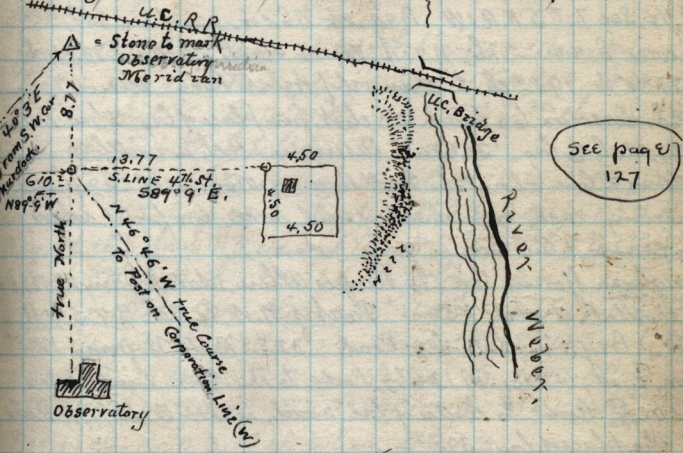 U.C. R R
= Stone to mark
Observatory
Meridian
8.77
40° 3' E
From S.W. Cor
Murdock
13.77
S. LINE 4TH St.
S89° 9' E.
610
N89° 9' W
4.50
4.50
4.50
U.C. Bridge
River Weber.
SEE page
127
true North
N 46° 46' W true Course
to Post on Corporation Line (W)
Observatory